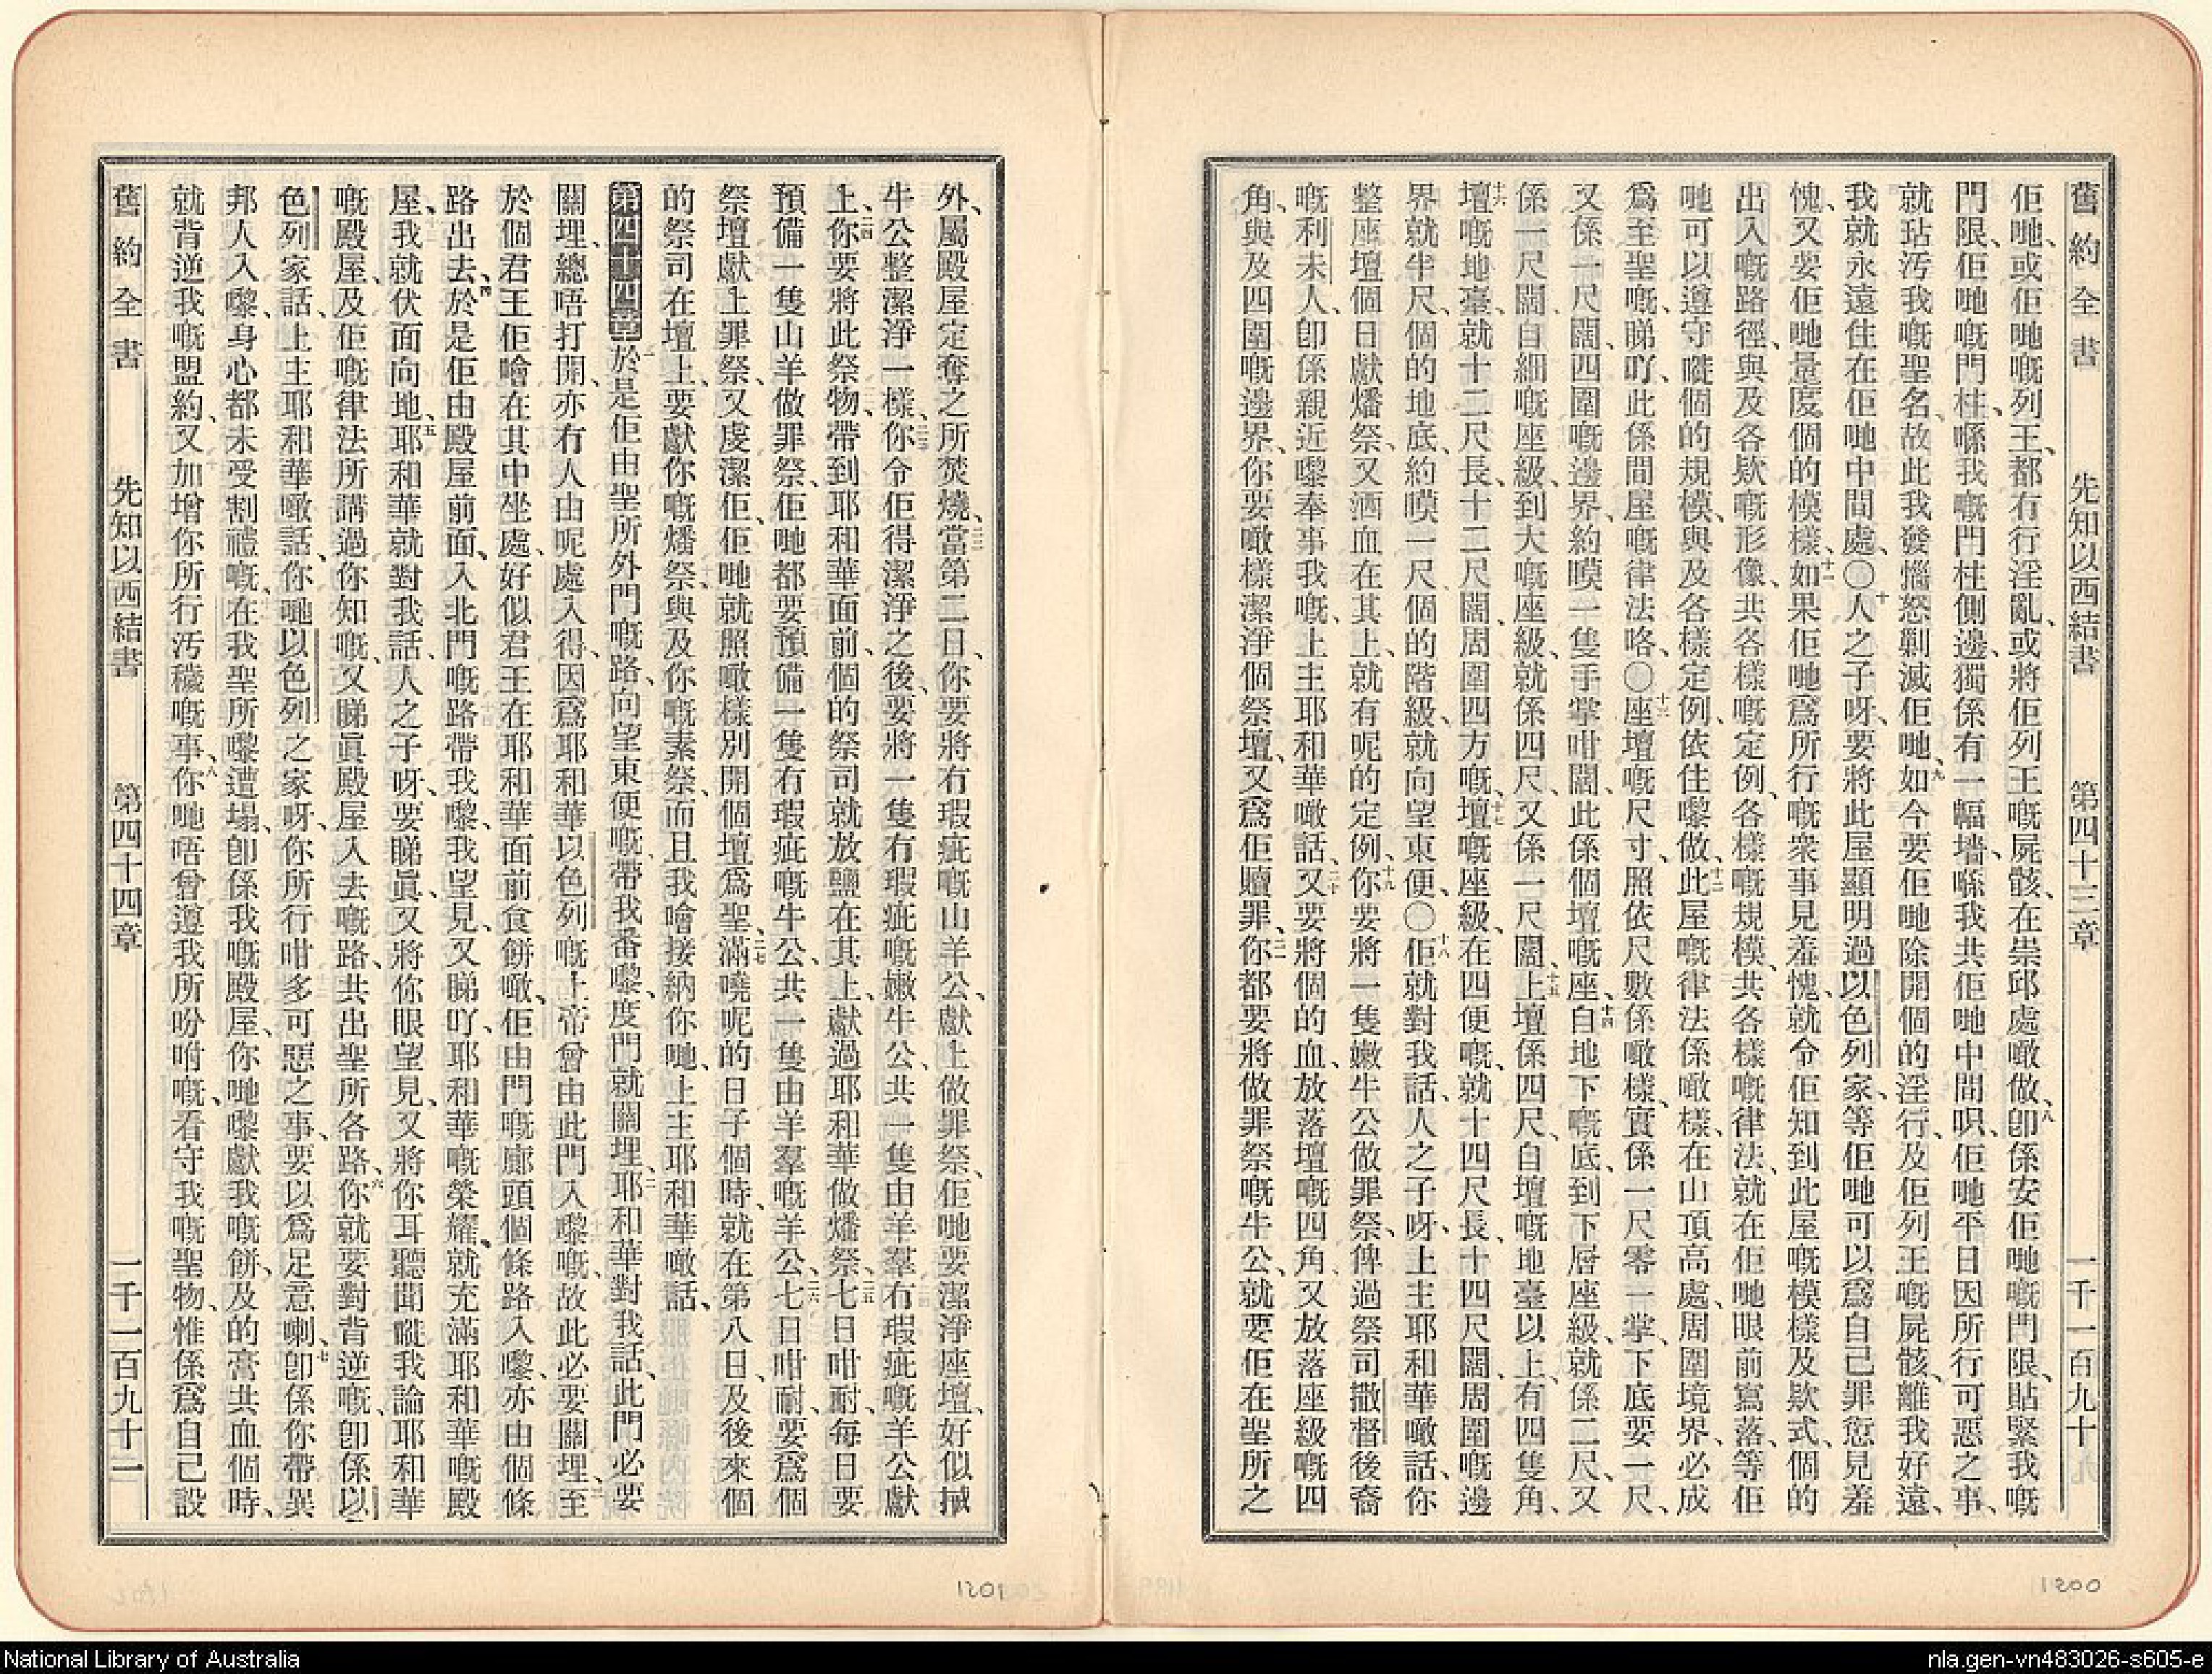 舊約全書 先知以西結書 第四十三章 一千一百九十
佢哋、或佢哋嘅列王、都有行淫亂、或將佢列王嘅屍骸、在崇邱處噉做、八卽係安佢哋嘅門限、貼緊我嘅
門限、佢哋嘅門柱、喺我嘅門柱側邊、獨係有一幅墻、喺我共佢哋中間呮、佢哋平日因所行可惡之事、
就玷汚我嘅聖名、故此我發惱怒剿滅佢哋、九如今要佢哋除開個的淫行、及佢列王嘅屍骸、離我好遠、
我就永遠住在佢哋中間處、〇十人之子呀、要將此屋顯明過以色列家、等佢哋可以爲自己罪愆見羞
愧、又要佢哋量度個的模樣、十一如果佢哋爲所行嘅衆事見羞愧、就令佢知到此屋嘅模樣及欵式、個的
出入嘅路徑、與及各欵嘅形像、共各樣嘅定例、各樣嘅規模、共各樣嘅律法、就在佢哋眼前寫落、等佢
哋可以遵守嘥個的規模、與及各樣定例、依住嚟做、十二此屋嘅律法係噉樣、在山頂高處、周圍境界、必成
爲至聖嘅、睇吖、此係間屋嘅律法咯〇十三座壇嘅尺寸、照依尺數係噉樣、實係一尺零一掌、下底要一尺、
又係一尺闊、四圍嘅邊界、約瞙一隻手掌咁闊、此係個壇嘅座、十四自地下嘅底、到下層座級、就係二尺、又
係一尺闊、自細嘅座級、到大嘅座級、就係四尺、又係一尺闊、十五上壇係四尺、自壇嘅地臺以上、有四隻角、
十六壇嘅地臺、就十二尺長、十二尺闊、周圍四方嘅、十七壇嘅座級、在四便嘅、就十四尺長、十四尺闊、周圍嘅邊
界就半尺、個的地底、約瞙一尺、個的階級、就向望東便、〇十八佢就對我話、人之子呀、上主耶和華噉話、你
整座壇個日獻燔祭、又洒血在其上、就有呢的定例、十九你要將一隻嫩牛公做罪祭、俾過祭司撒督後裔
嘅利未人、卽係親近嚟奉事我嘅、上主耶和華噉話、二十又要將個的血、放落壇嘅四角、又放落座級嘅四
角、與及四圍嘅邊界、你要噉樣潔淨個祭壇、又爲佢贖罪、二一你都要將做罪祭嘅牛公、就要佢在聖所之
1200
外、屬殿屋定奪之所焚燒、二二當第二日、你要將冇瑕疵嘅山羊公、獻上做罪祭、佢哋要潔淨座壇、好似搣
牛公整潔淨一樣、二三你令佢得潔淨之後、要將一隻冇瑕疵嘅嫩牛公、共一隻由羊羣冇瑕疵嘅羊公獻
上、二四你要將此祭物、帶到耶和華面前、個的祭司就放鹽在其上、獻過耶和華做燔祭、二五七日咁耐、每日要
預備一隻山羊做罪祭、佢哋都要預備一隻冇瑕疵嘅牛公、共一隻由羊羣嘅羊公、二六七日咁耐、要爲個
祭壇獻上罪祭、又虔潔佢、佢哋就照噉樣別開個壇爲聖、二七滿嘵呢的日子個時、就在第八日、及後來個
的祭司在壇上、要獻你嘅燔祭、與及你嘅素祭、而且我噲接納你哋、上主耶和華噉話、
第四十四章 一於是佢由聖所外門嘅路、向望東便嘅、帶我番嚟、度門就關埋、二耶和華對我話、此門必要
關埋、總唔打開、亦冇人由呢處入得、因爲耶和華以色列嘅上帝、曾由此門入嚟嘅、故此必要關埋、三至
於個君王佢噲在其中坐處、好似君王在耶和華面前食餅噉、佢由門嘅廊頭個條路入嚟、亦由個條
路出去、四於是佢由殿屋前面、入北門嘅路帶我嚟、我望見、又睇吖、耶和華嘅榮耀、就充滿耶和華嘅殿
屋、我就伏面向地、五耶和華就對我話、人之子呀、要睇眞、又將你眼望見、又將你耳聽聞嘥我論耶和華
嘅殿屋、及佢嘅律法所講過你知嘅、又睇眞殿屋入去嘅路、共出聖所各路、六你就要對背逆嘅、卽係以
色列家話、上主耶和華噉話、你哋以色列之家呀、你所行咁多可惡之事、要以爲足意喇、七卽係你帶異
邦人入嚟、身心都未受割禮嘅、在我聖所嚟遭塌、卽係我嘅殿屋、你哋嚟獻我嘅餅、及的膏共血個時、
就背逆我嘅盟約、又加增你所行汚穢嘅事、八你哋唔曾遵我所吩咐嘅、看守我嘅聖物、惟係爲自己設
舊約全書 先知以西結書 第四十四章 一千一百九十一
1201
National Library of Australia
nla.gen-vn483026-s605-e